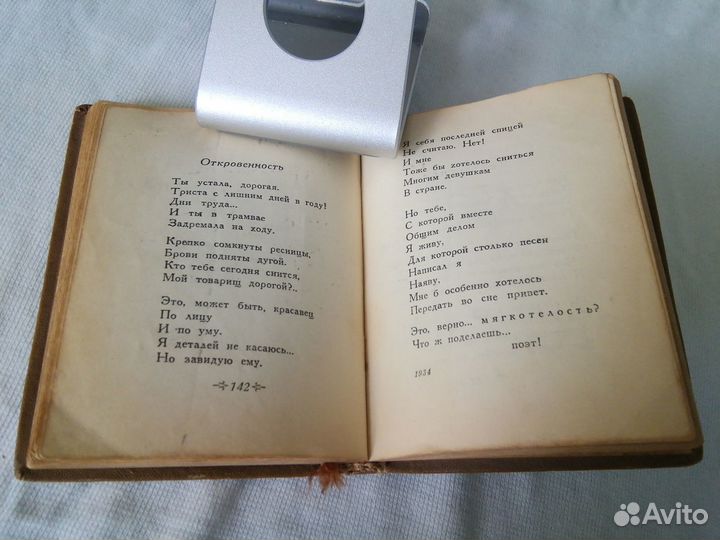 Откровенность
Ты устала, дорогая.
Триста с лишним дней в году!
Дни труда...
И ты в трамвае
Задремала на ходу.
Крепко сомкнуты ресницы,
Брови подняты дугой.
Кто тебе сегодня снится,
Мой товарищ дорогой?..
Это, может быть, красавец
По лицу
И по уму.
Я деталей не касаюсь...
Но завидую ему.
142
Я себя последней спицей
Не считаю. Нет!
И мне
Тоже бы хотелось сниться
Многим девушкам
В стране.
Но тебе,
С которой вместе
Общим делом
Я живу,
Для которой столько песен
Написал я
Наяву,
Мне б особенно хотелось
Передать во сне привет.
Это, верно... мягкотелость?
Что ж поделаешь...
поэт!
1934
Avito